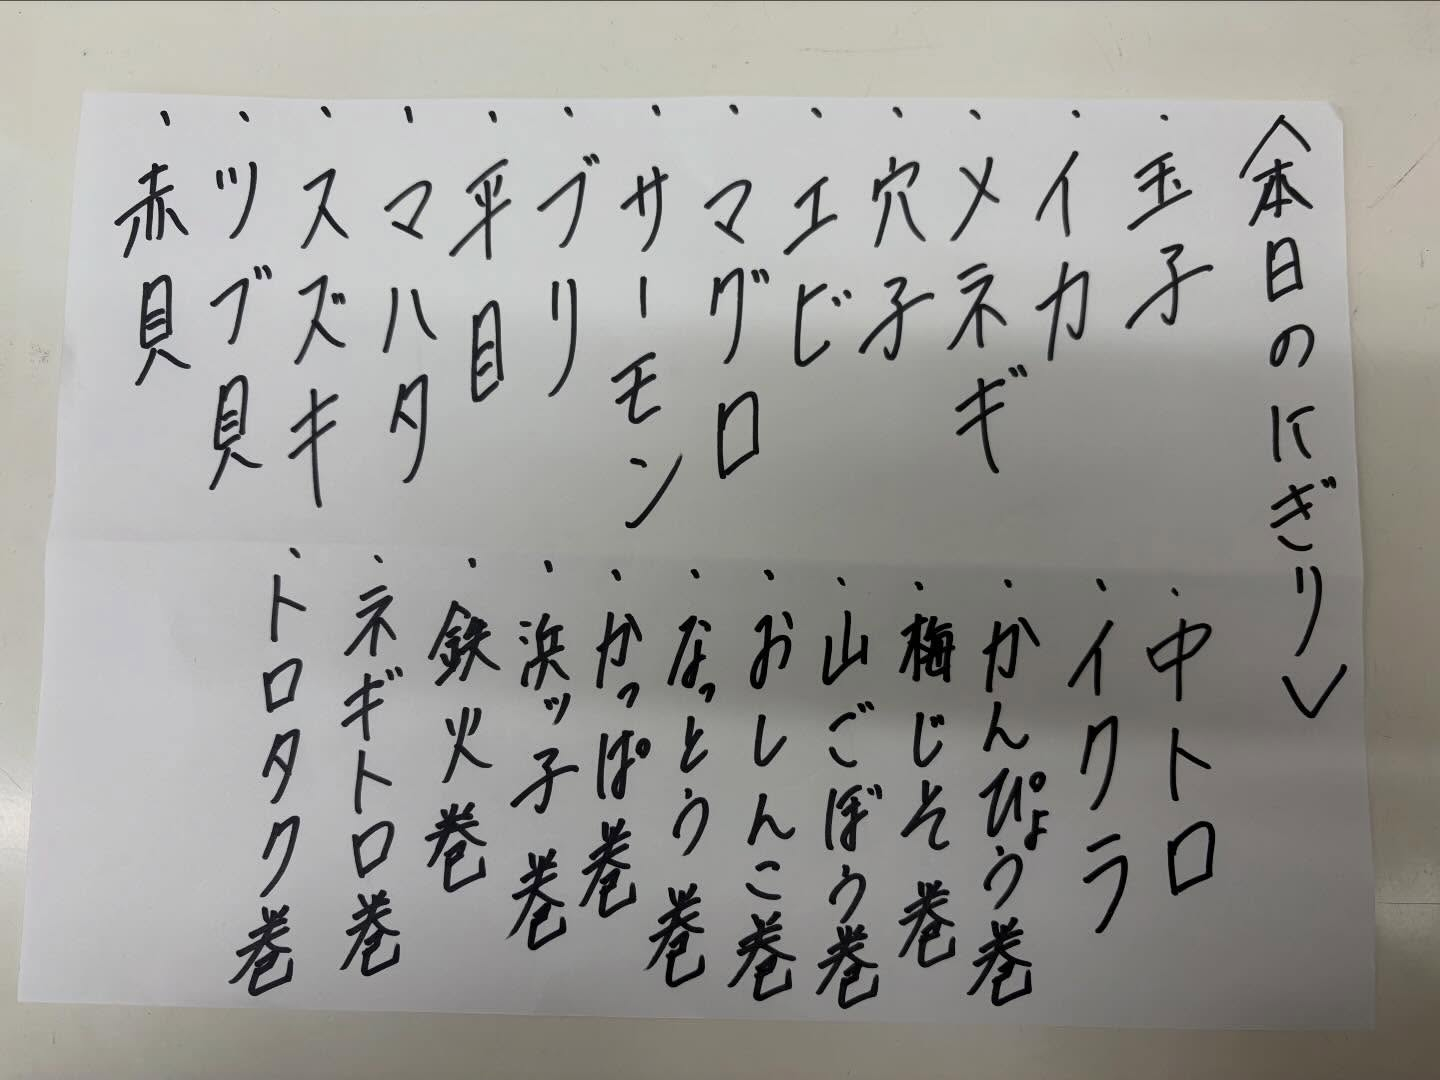 〈本日のにぎり〉
・玉子
・イカ
・メネギ
・穴子
・エビ
・マグロ
・サーモン
・ブリ
・平目
・マハタ
・スズキ
・ツブ貝
・赤貝
・中トロ
・イクラ
・かんぴょう巻
・梅じそ巻
・山ごぼう巻
・おしんこ巻
・なっとう巻
・かっぱ巻
・浜ッ子巻
・鉄火巻
・ネギトロ巻
・トロタク巻